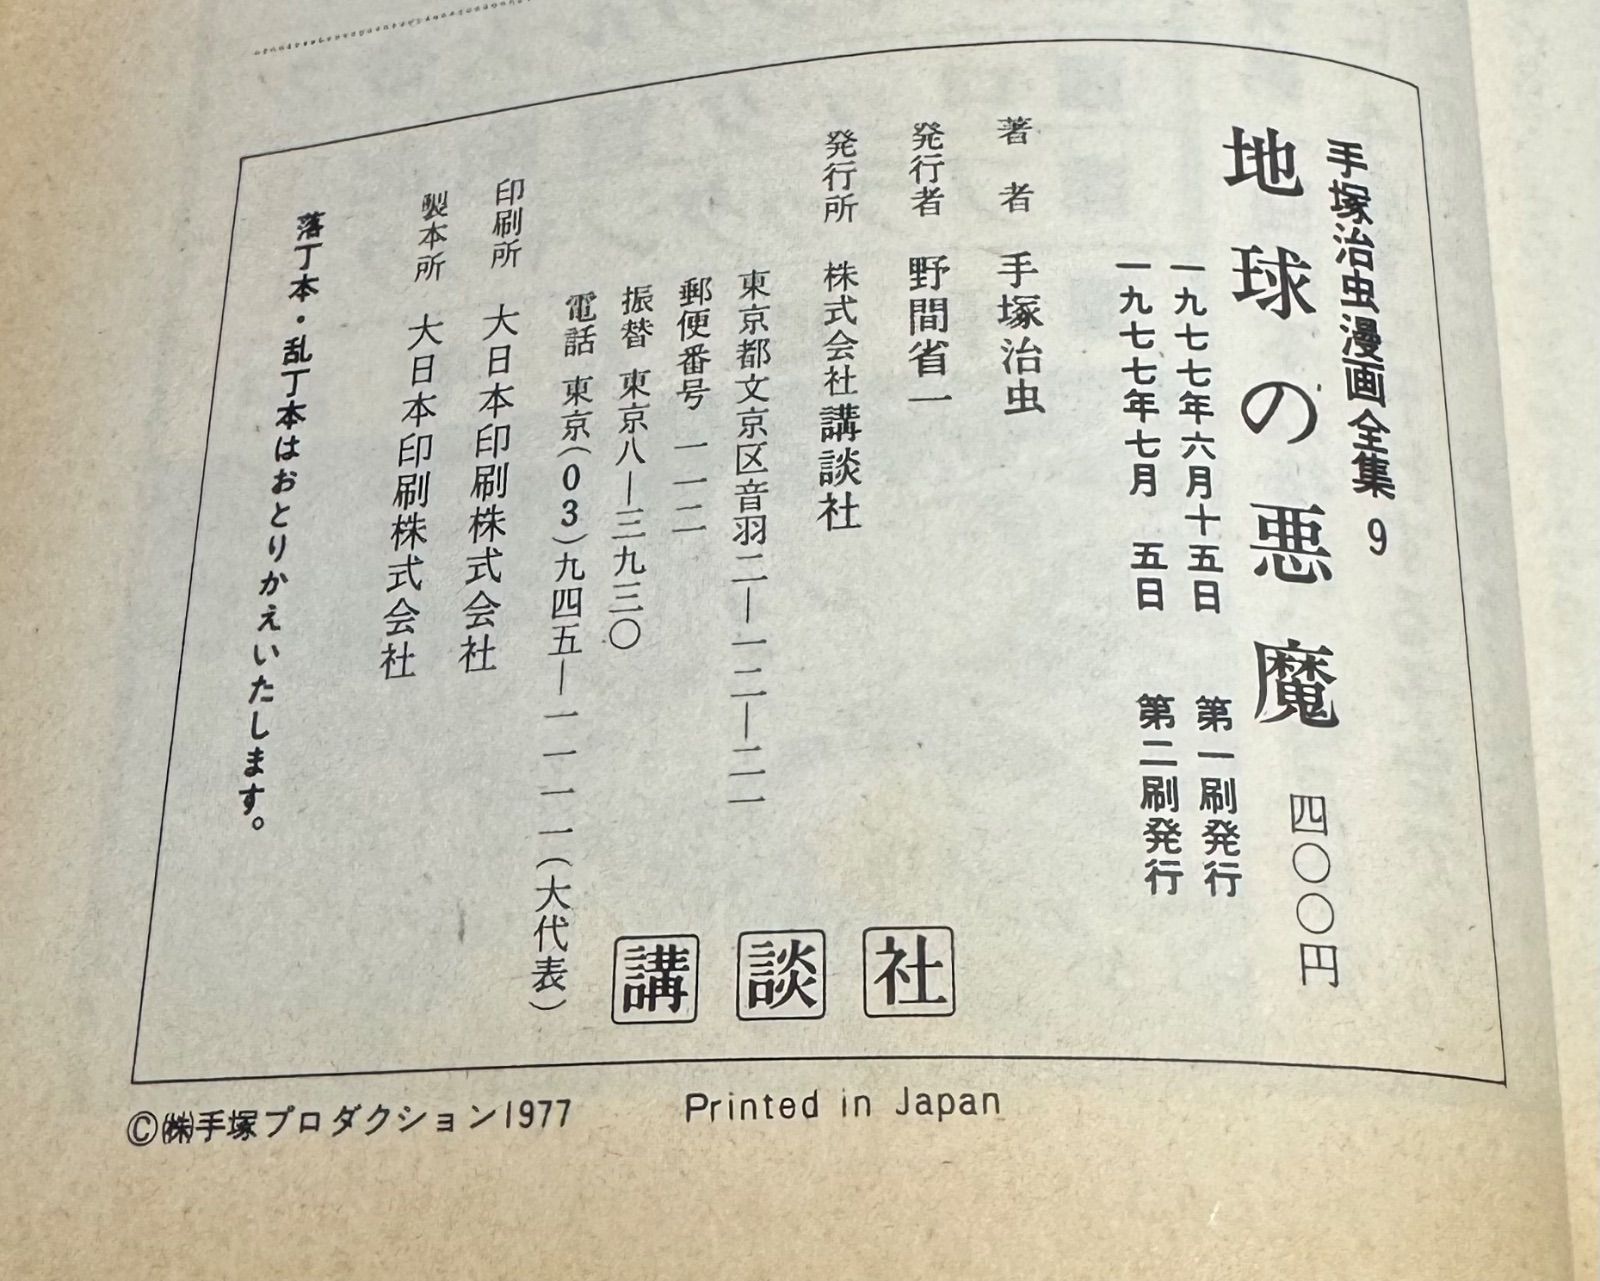 手塚治虫漫画全集 9
地球の悪魔 四〇〇円
一九七七年六月十五日 第一刷発行
一九七七年七月 五日 第二刷発行
著 者 手塚治虫
発行者 野間省一
発行所 株式会社 講談社
東京都文京区音羽二―一二―二一
郵便番号 一一二
振替 東京八―三九三〇
電話 東京(03)九四五―一一一一(大代表)
印刷所 大日本印刷株式会社
製本所 大日本印刷株式会社
落丁本・乱丁本はおとりかえいたします。
講 談 社
©㈱手塚プロダクション1977
Printed in Japan